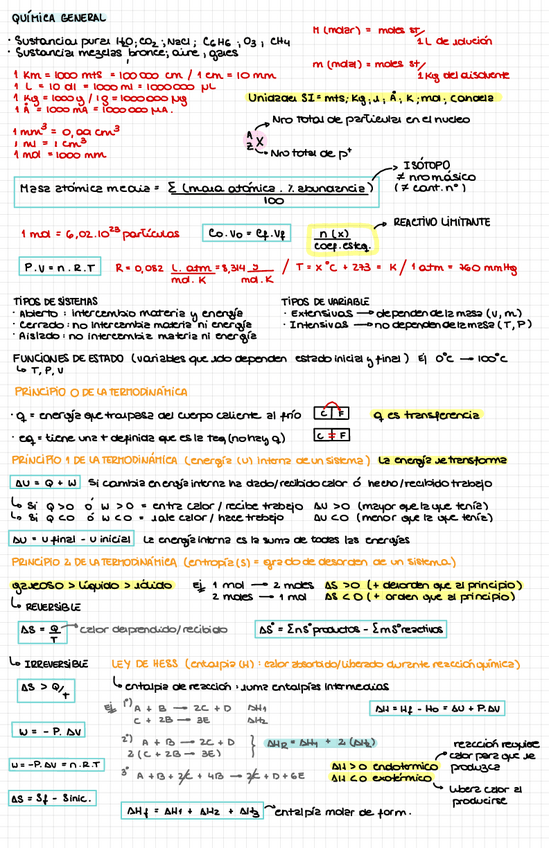 QUÍMICA GENERAL
· Sustancias puras H2O, CO2, NaCl, C6H6, O3, CH4
· Sustancias mezclas bronce, aire, gases
M (molar) = moles st/1L de solución
m (molal) = moles st/1Kg del disolvente
1 Km = 1000 mts = 100000 cm / 1 cm = 10 mm
1 L = 10 dl = 1000 ml = 1000000 µL
1 Kg = 1000 g / 1g = 1000000 µg
1 A = 1000 mA = 1000000 µA.
Unidades SI = mts, Kg, s, A, K, mol, candela
1 mm³ = 0,001 cm³
1 ml = 1 cm³
1 mol = 1000 mm
Nro total de particulas en el nucleo
A
Z X
Nro total de p+
Masa atómica media = Σ (masa atómica . % abundancia)
100
ISÓTOPO
≠ nro másico
(≠ cant. n°)
1 mol = 6,02.10²³ partículas
Co.Vo = Cf.Vf
n (x)
coef. esteq.
REACTIVO LIMITANTE
P.V = n.R.T
R = 0,082 L.atm/mol.K = 8,314 J/mol.K / T = x °C + 273 = K / 1 atm = 760 mmHg
TIPOS DE SISTEMAS
· Abierto : intercambio materia y energía
· Cerrado : no intercambia materia ni energía
· Aislado : no intercambia materia ni energía
TIPOS DE VARIABLE
· Extensivas → dependen de la masa (V, m)
· Intensivas → no dependen de la masa (T, P)
FUNCIONES DE ESTADO (variables que solo dependen estado inicial y final) Ej 0°C → 100°C
↳ T, P, V
PRINCIPIO 0 DE LA TERMODINÁMICA
· Q = energía que traspasa del cuerpo caliente al frío
C F
Q es transferencia
· eq = tiene una t definida que es la teq (no hay q)
C = F
PRINCIPIO 1 DE LA TERMODINÁMICA (energía (U) interna de un sistema) La energía se transforma
ΔU = Q + W Si cambia energía interna ha dado/recibido calor ó hecho/recibido trabajo
↳ Si Q > 0 ó W > 0 = entra calor / recibe trabajo ΔU > 0 (mayor que la que tenía)
↳ Si Q < 0 ó W < 0 = sale calor / hace trabajo ΔU < 0 (menor que la que tenía)
ΔU = U final - U inicial La energía interna es la suma de todas las energías
PRINCIPIO 2 DE LA TERMODINÁMICA (entropía (S) = grado de desorden de un sistema)
gaseoso > líquido > sólido
ej 1 mol → 2 moles ΔS > 0 (+ desorden que al principio)
2 moles → 1 mol ΔS < 0 (+ orden que al principio)
↳ REVERSIBLE
ΔS = Q/T → calor desprendido/recibido
ΔS° = Σn S° productos - Σm S° reactivos
↳ IRREVERSIBLE
LEY DE HESS (entalpía (H) : calor absorbido/liberado durante reacción química)
ΔS > Q/T
↳ entalpía de reacción : suma entalpías intermedias
ej 1°) A + B → 2C + D ΔH1
C + 2B → 3E ΔH2
ΔH = Hf - Ho = ΔU + P.ΔV
W = - P. ΔV
2°) A + B → 2C + D
2 (C + 2B → 3E)
ΔHR = ΔH1 + 2 (ΔH2)
W = -P. ΔV = n.R.T
3° A + B + 2C + 4B → 2C + D + 6E
ΔH > 0 endotérmico
ΔH < 0 exotérmico
reacción requiere
calor para que se
produzca
libera calor al
producirse
ΔS = Sf - Sinic.
ΔHf = ΔH1 + ΔH2 + ΔH3 → entalpía molar de form.